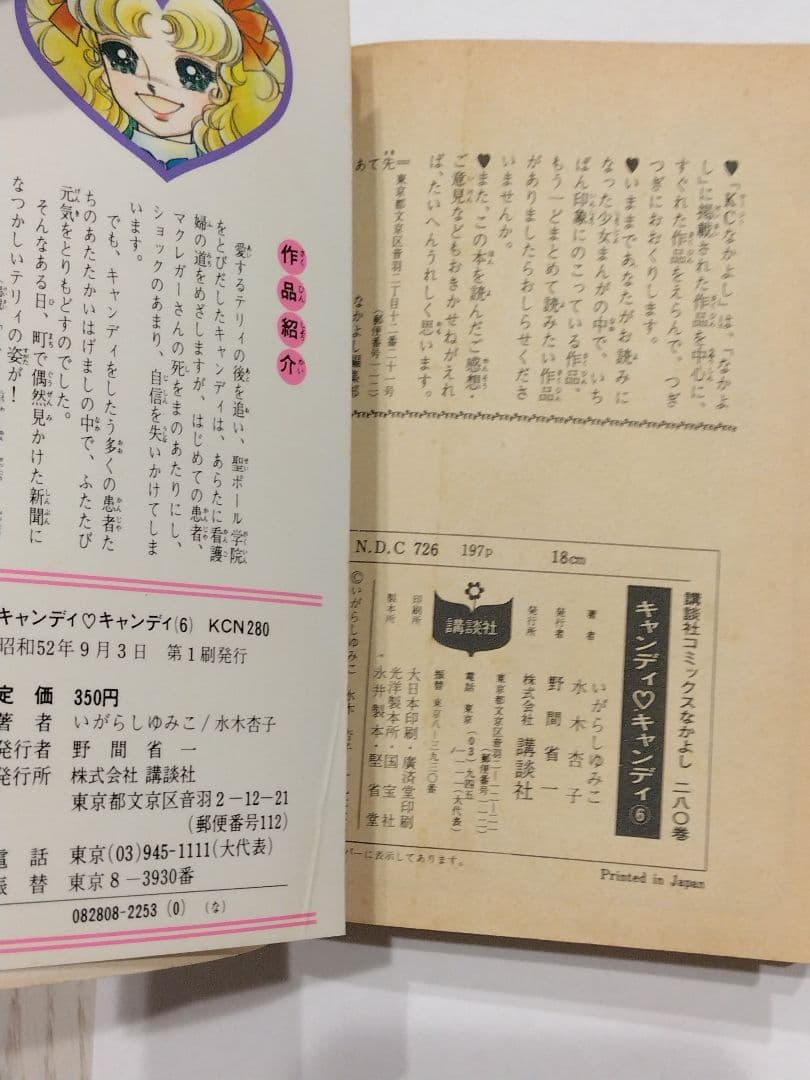 作品紹介
愛するテリィの後を追い、聖ポール学院
をとびだしたキャンディは、あらたに看護
婦の道をめざしますが、はじめての患者、
マクレガーさんの死をまのあたりにし、
ショックのあまり、自信を失いかけてしま
います。
でも、キャンディをしたう多くの患者た
ちのあたたかいはげましの中で、ふたたび
元気をとりもどすのでした。
そんなある日、町で偶然見かけた新聞に
なつかしいテリィの姿が!
キャンディ♡キャンディ(6) KCN280
昭和52年9月3日 第1刷発行
定価 350円
著者 いがらしゆみこ/水木杏子
発行者 野間省一
発行所 株式会社 講談社
東京都文京区音羽2-12-21
(郵便番号112)
電話 東京(03)945-1111(大代表)
振替 東京8-3930番
082808-2253 (0) (な)
♥『KCなかよし』は、『なかよ
し』に掲載された作品を中心に、
すぐれた作品をえらんで、つぎ
つぎにおおくりします。
♥いままであなたがお読みに
なった少女まんがの中で、いち
ばん印象にのこっている作品、
もう一どまとめて読みたい作品
がありましたらおしらせくださ
いませんか。
♥また、この本を読んだご感想・
ご意見などもおきかせねがえれ
ば、たいへんうれしく思います。
あて先=東京都文京区音羽二丁目十二番二十一号
(郵便番号一一二)
なかよし編集部
N.D.C 726 197p 18cm
講談社コミックスなかよし 二八〇巻
キャンディ♡キャンディ⑥
著者 いがらしゆみこ
水木杏子
発行者 野間省一
発行所 株式会社 講談社
東京都文京区音羽二-一二-二一
(郵便番号一一二)
電話 東京(03)九四五
一一一一(大代表)
振替 東京八-三九三〇番
講談社
印刷所 大日本印刷・廣済堂印刷
製本所 光洋製本所・国宝社
永井製本・堅省堂
©いがらしゆみこ 水木杏子
バーに表示してあります。
Printed in Japan